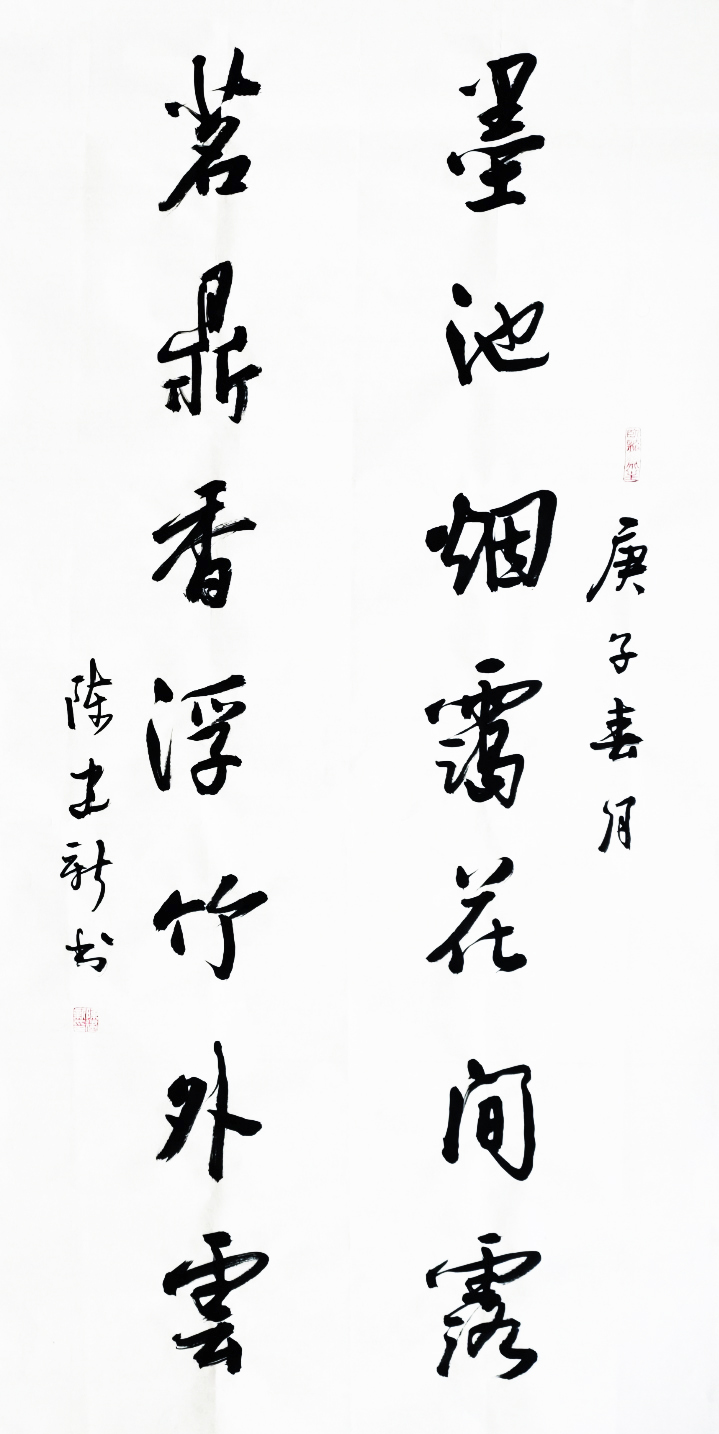 庚子春月
墨池烟霭花间露
茗鼎香浮竹外雲
陈史新书